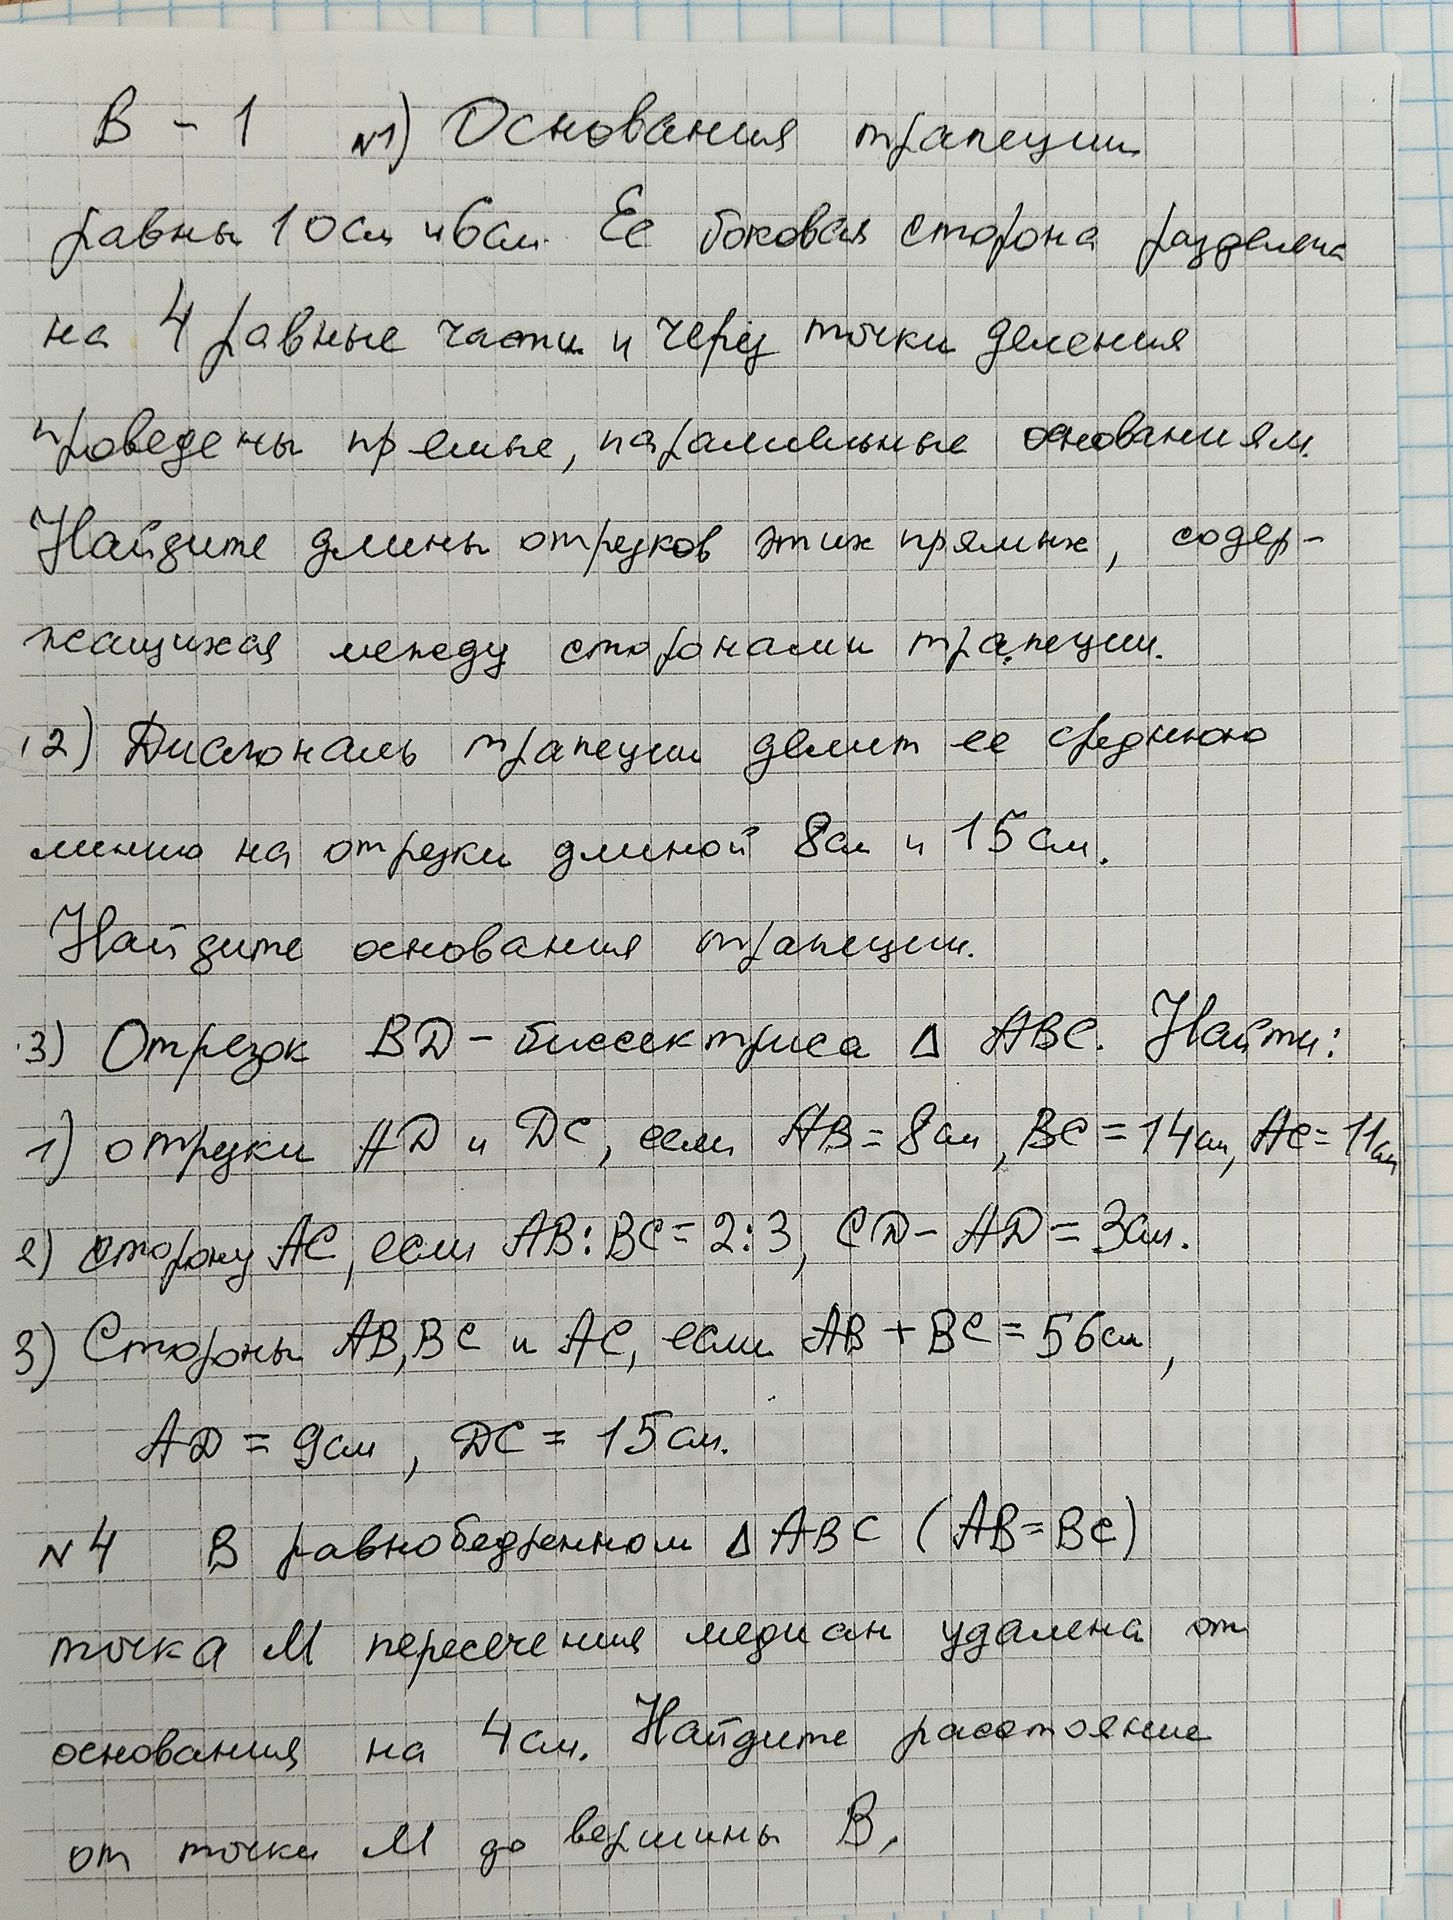 В - 1 №1) Основания трапеции
равны 10см и 6см. Ее боковая сторона разделена
на 4 равные части и через точки деления
проведены прямые, параллельные основаниям.
Найдите длины отрезков этих прямых, содер-
жащихся между сторонами трапеции.
2) Диагональ трапеции делит ее среднюю
линию на отрезки длиной 8см и 15см.
Найдите основания трапеции.
3) Отрезок BD - биссектриса Δ ABC. Найти:
1) отрезки AD и DC, если AB = 8см, BC = 14см, AC = 11см
2) сторону AC, если AB : BC = 2 : 3, CD - AD = 3см.
3) Стороны AB, BC и AC, если AB + BC = 56см,
AD = 9см, DC = 15см.
№4 В равнобедренном Δ ABC (AB = BC)
точка М пересечения медиан удалена от
основания на 4см. Найдите расстояние
от точки М до вершины В.